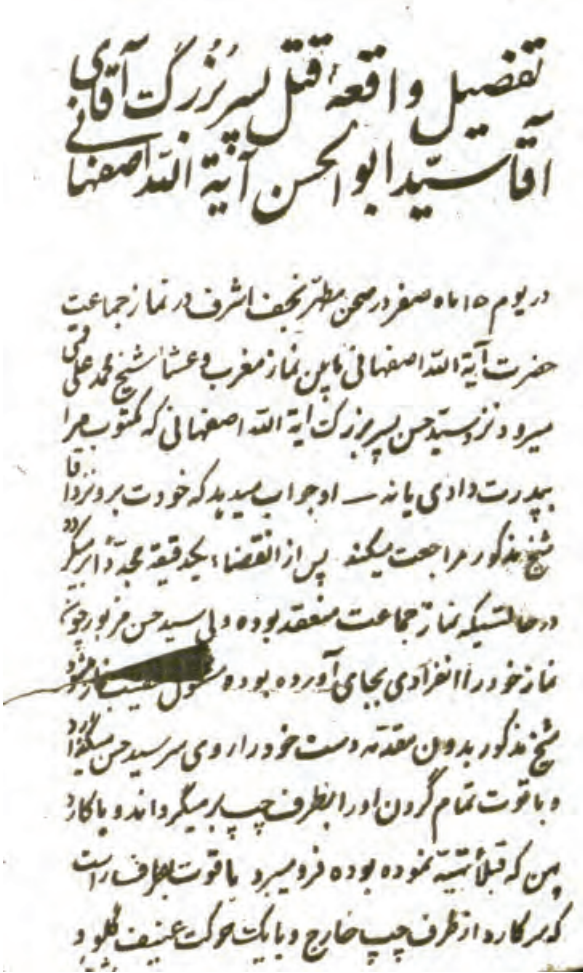 تفصیل واقعهٔ قتل پسر بزرگ آقای
آقا سیّد ابوالحسن آیة اللّه اصفهانی
در یوم ۱۵ ماه صفر در صحن مطهّر نجف اشرف در نماز جماعت
حضرت آیة اللّه اصفهانی مابین نماز مغرب و عشا شیخ محمد علی قمی
میرود نزد سیّد حسن پسر بزرگ آیة اللّه اصفهانی که مکتوب مرا
بپدرت دادی یا نه ــ او جواب میدهد که خودت برو نزد آقا
شیخ مذکور مراجعت میکند پس از انقضاء یکدقیقه مجدّداً برمیگردد
در حالتیکه نماز جماعت منعقد بوده ولی سید حسن مزبور چون
نماز خود را انفرادی بجای آورده بوده مشغول تعقیب نماز
شیخ مذکور بدون مقدّمه دست خود را روی سر سید حسن میگذارد
و با قوت تمام گردن او را بطرف چپ بر میگرداند و با کارد
پهن که قبلاً تهیّه نموده بوده فرو میبرد با قوت بطرف راست
که سر کارد از طرف چپ خارج و با یک حرکت عنیف گلو و